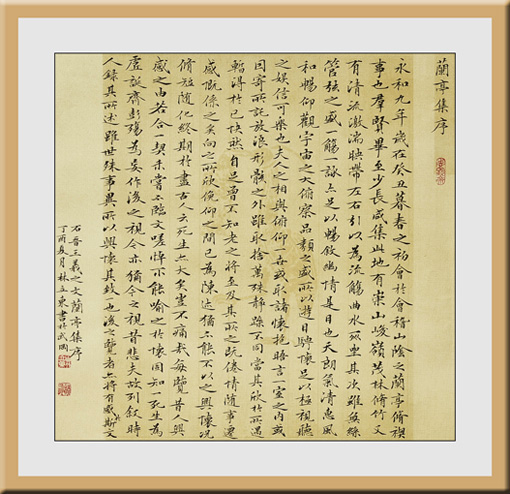 蘭亭集序
永和九年歲在癸丑暮春之初會於會稽山陰之蘭亭脩禊
事也羣賢畢至少長咸集此地有崇山峻嶺茂林脩竹又
有清流激湍映帶左右引以為流觴曲水列坐其次雖無絲
管弦之盛一觴一詠亦足以暢敘幽情是日也天朗氣清惠風
和暢仰觀宇宙之大俯察品類之盛所以遊目騁懷足以極視聽
之娛信可樂也夫人之相與俯仰一世或取諸懷抱晤言一室之内或
因寄所託放浪形骸之外雖取捨萬殊靜躁不同當其欣於所遇
暫得於己怏然自足曾不知老之將至及其所之既倦情隨事遷
感慨係之矣向之所欣俛仰之間已為陳迹猶不能不以之興懷況
脩短隨化終期於盡古人云死生亦大矣豈不痛哉每覽昔人興
感之由若合一契未嘗不臨文嗟悼不能喻之於懷固知一死生為
虛誕齊彭殤為妄作後之視今亦猶今之視昔悲夫故列敘時
人錄其所述雖世殊事異所以興懷其致一也後之覽者亦將有感斯文
右晉王羲之文蘭亭集序
丁酉夏月林立東書於武